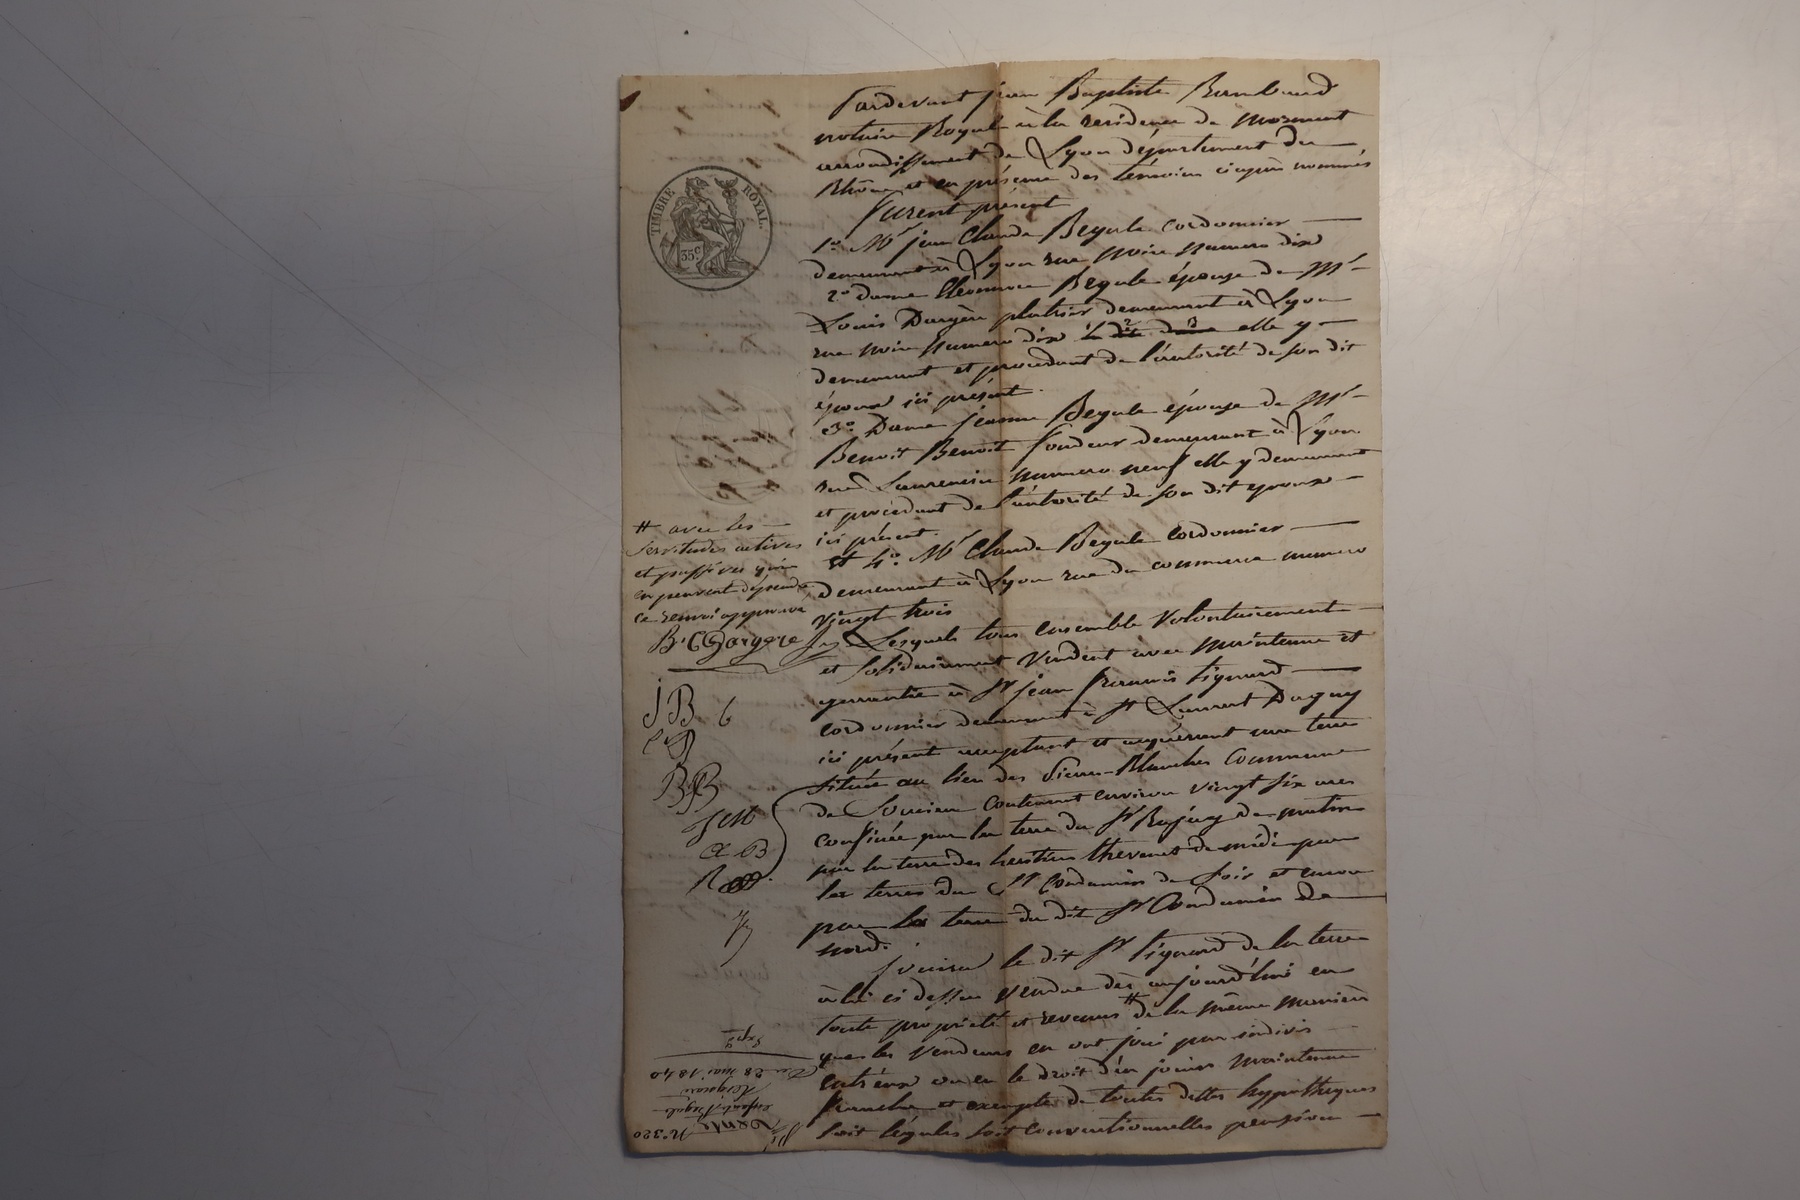 Pardevant jean Baptiste Rambaud
notaire Royal à la residence de Mornant
arrondissement de Lyon département du
Rhône et en présence des témoins ciaprès nommés
furent présent
1° Mr jean Claude Begule cordonnier
demeurant à Lyon rue Noire Numero dix
2° dame Eléonnore Begule épouse de Mr
Louis Dargère platrier demeurant à Lyon
rue Noire Numero dix elle y
demeurant et procedant de l'autorité de son dit
époux ici présent.
3° Dame jeanne Begule épouse de Mr
Benoit Benoit fondeur demeurant à Lyon
rue Laurencin Numero neuf elle y demeurant
et procedant de l'autorité de son dit epoux
ici présent.
et 4° Mr Claude Begule cordonnier
demeurant à Lyon rue du commerce numero
vingt trois
Lesquels tous ensemble volontairement
et solidairement vendent avec maintenue et
garantie à Sr jean francois
cordonnier demeurant à St Laurent Dagny
ici présent acceptant et acquérant une terre
située au lieu des Pierres-Blanches commune
de Soucieu contenant environ vingt six ares
confinée par la terre du Sr de matin
par la terre des heritiers thevenet de midi par
les terres du Sr Condamin de soir et encore
par la terre du dit Sr Condamin de
nord.
jouira le dit Sr de la terre
à lui ci dessus vendue dès aujourd'hui en
toute propriété et revenus # de la même manière
que les vendeurs en ont joui par indivis
entréux ou eu le droit d'en jouir maintenue
franche et exempte de toutes dettes hypothèques
soit légales soit conventionnelles pension
TIMBRE ROYAL.
35c
# avec les
servitudes actives
et passives qui
en peuvent dépendre
ce renvoi approuvé
Dargere
JB
BB
N° 320
Vente
enfants Begule
Du 28 mai 1840
Expé